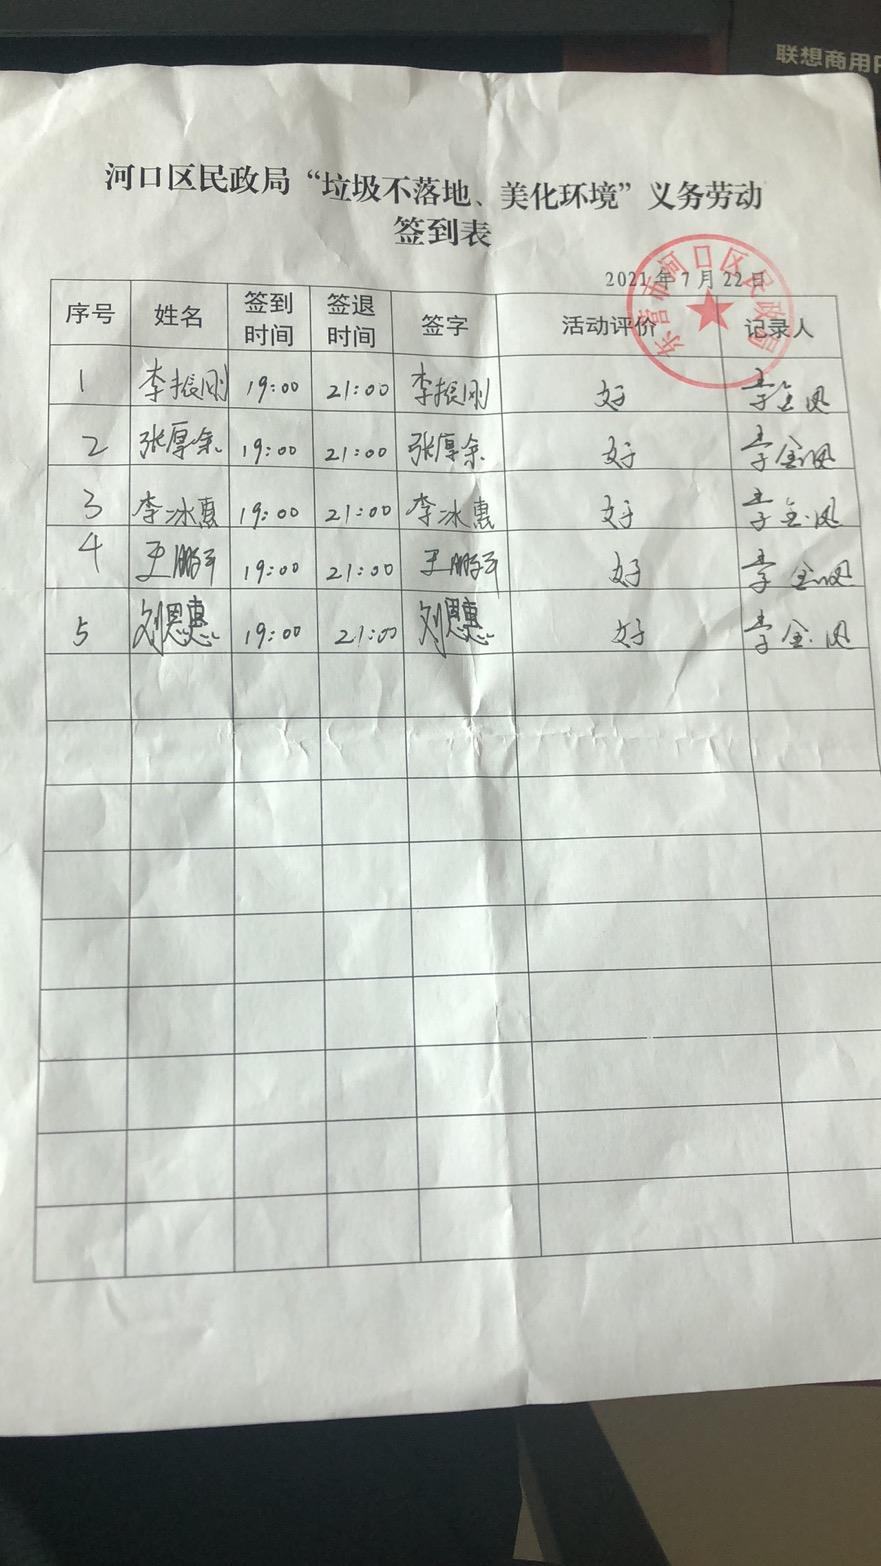 联想商用P
河口区民政局“垃圾不落地、美化环境”义务劳动
签到表
2021年7月22日
东营市河口区民政局
序号 姓名 签到时间 签退时间 签字 活动评价 记录人
1 李振刚 19:00 21:00 李振刚 好 李金凤
2 张厚余 19:00 21:00 张厚余 好 李金凤
3 李冰惠 19:00 21:00 李冰惠 好 李金凤
4 王鹏 19:00 21:00 王鹏 好 李金凤
5 刘恩惠 19:00 21:00 刘恩惠 好 李金凤